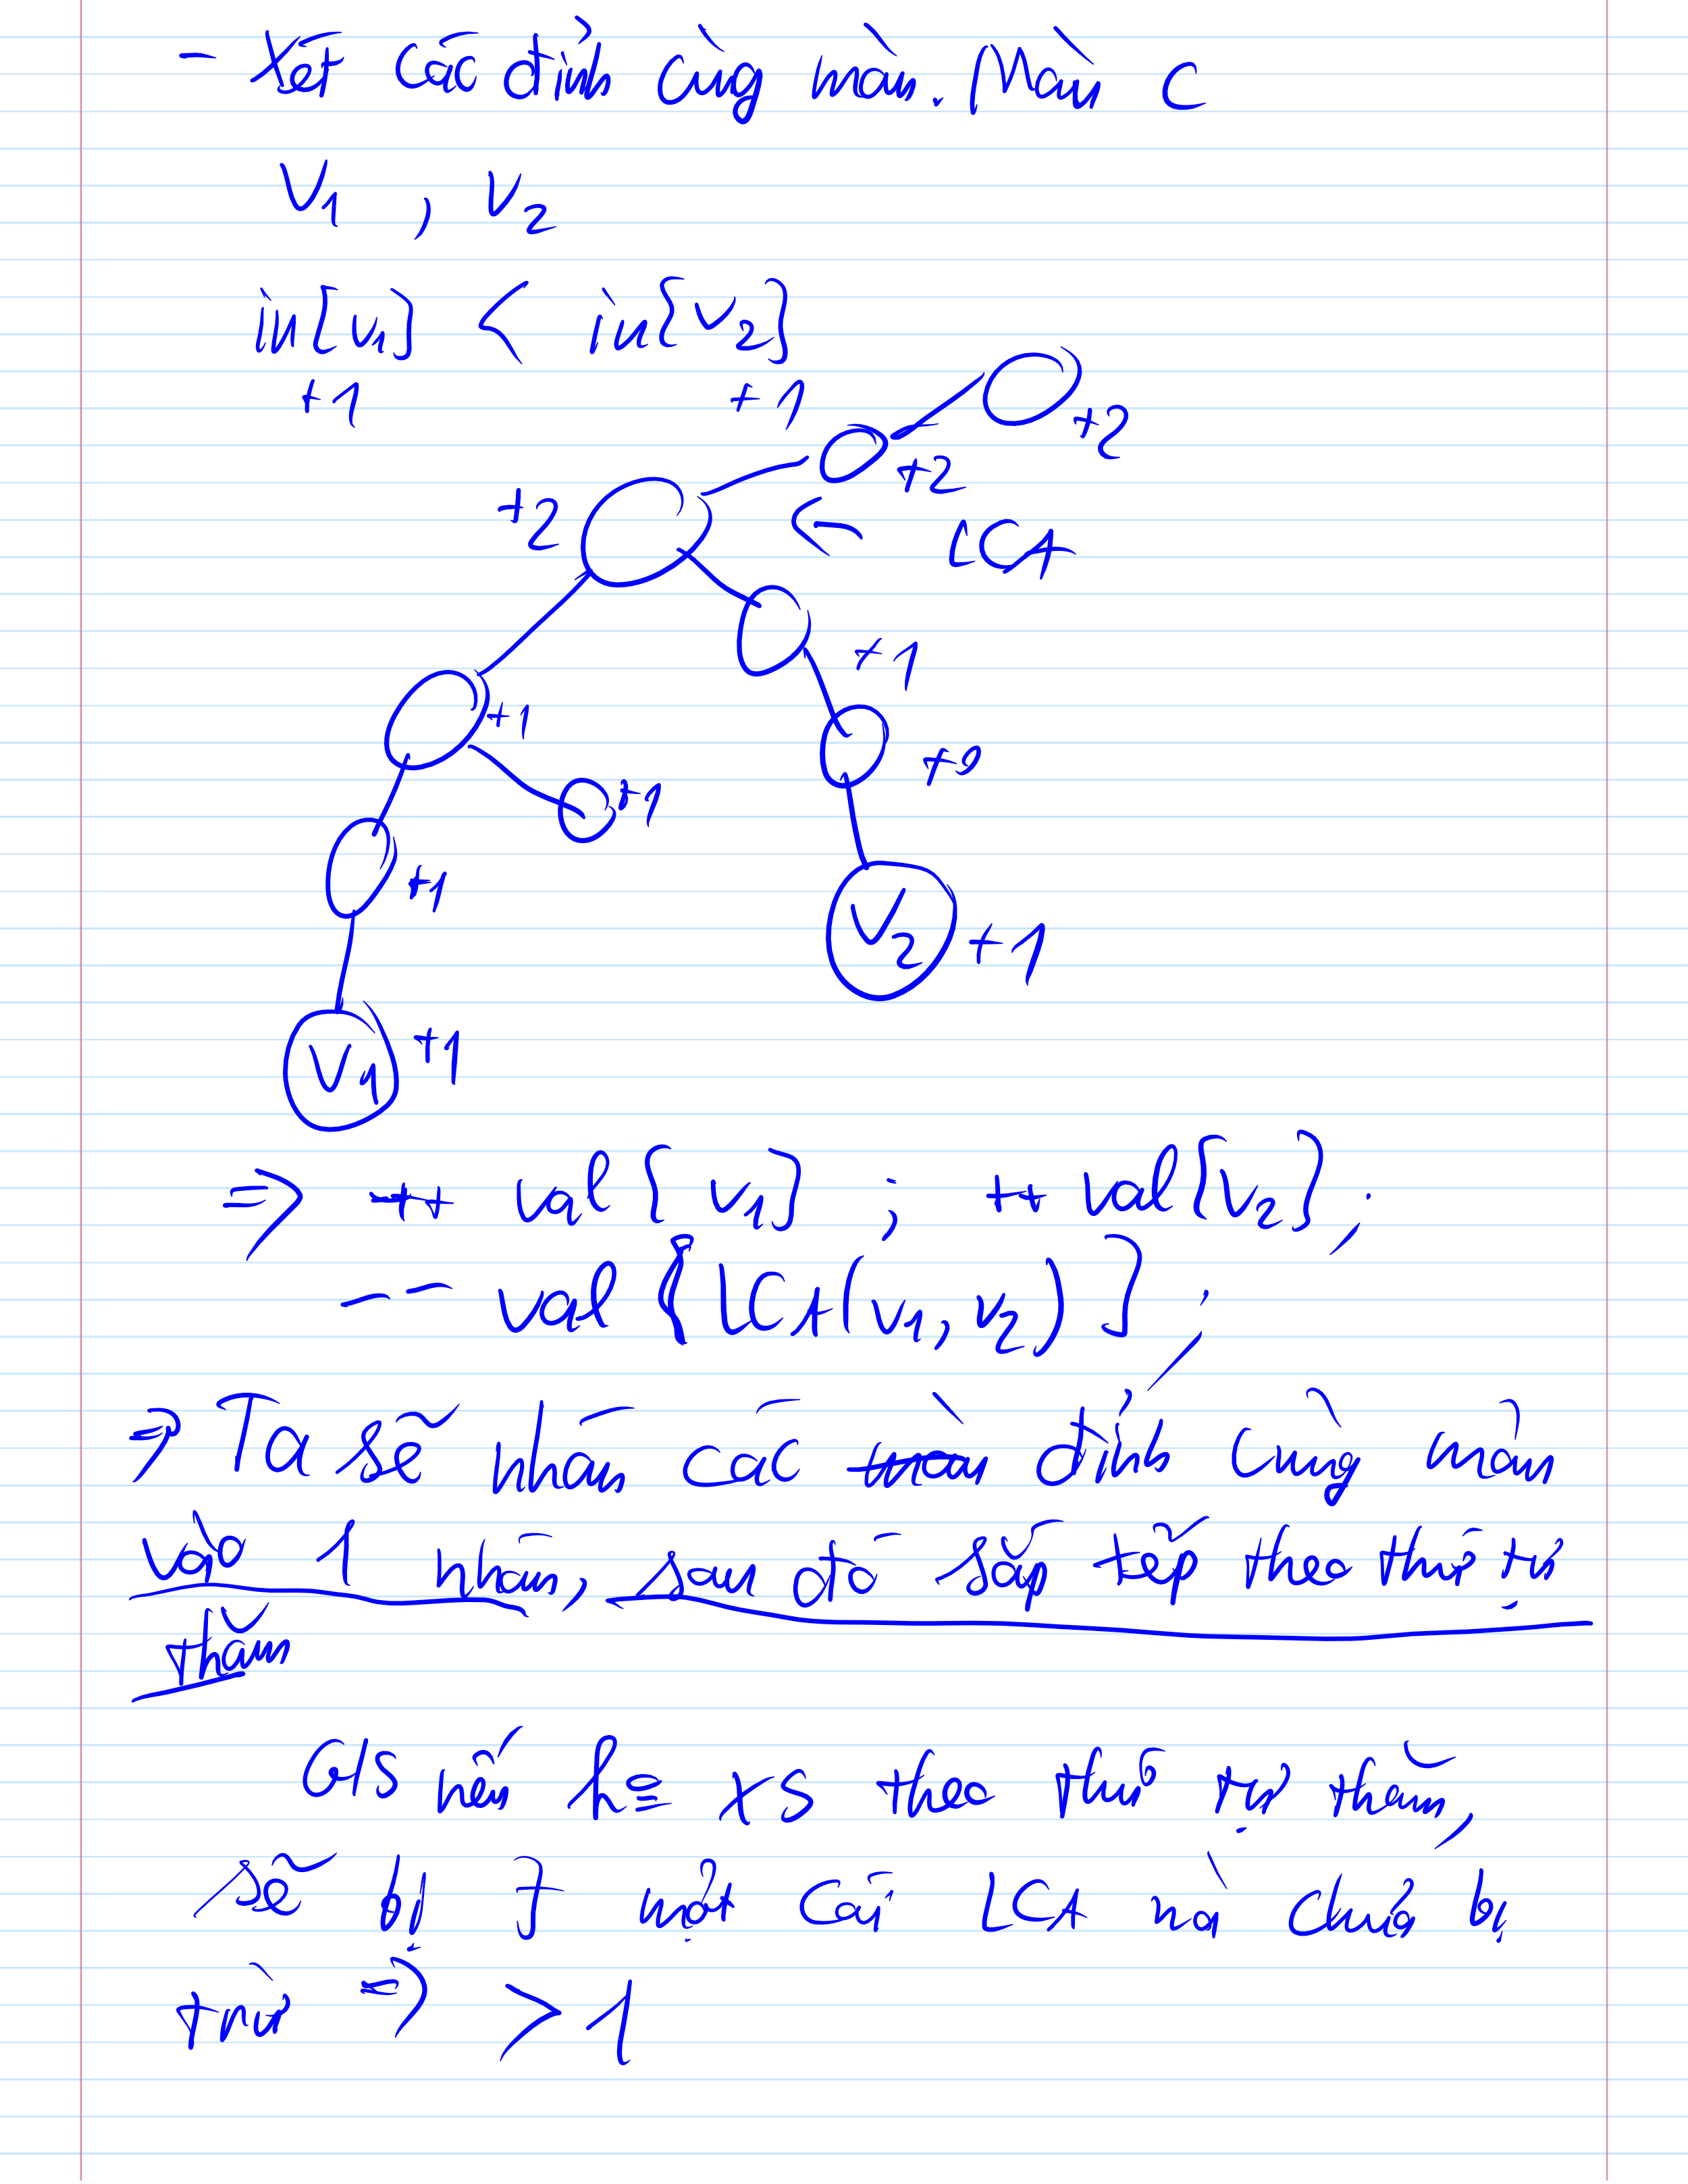 - Xét các đỉnh cùng màu. Màu C
V1 , V2
in[v1] < in[v2]
+1 +1
+2
+2
+2
LCA
+1
+1
+1
+1
V2 +1
V1 +1
=> ++ val[v1] ; ++ val[v2];
-- val[LCA(v1, v2)];
=> Ta sẽ nhóm các đỉnh cùng màu
vào 1 nhóm, sau đó sắp xếp theo thứ tự
thăm
G/S nếu k= xs theo thứ tự thăm,
sẽ bị ∃ một cái LCA mà chưa bị
trừ => > 1